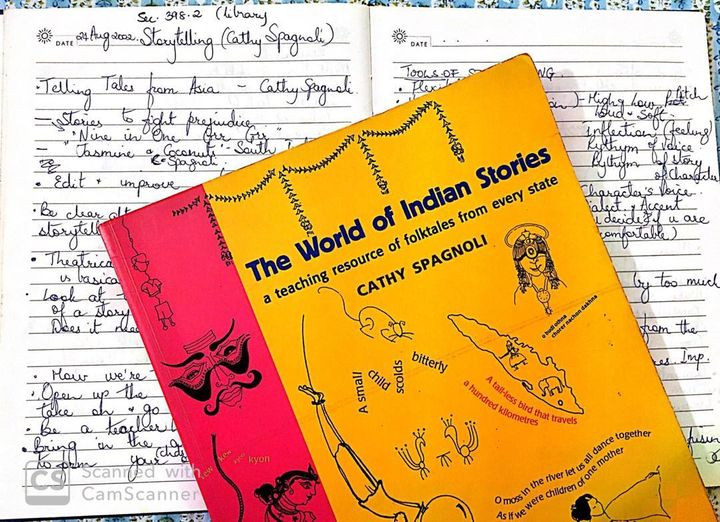 Sec 398.2 (Library)
DATE 24 Aug 2002. Storytelling (Cathy Spagnoli)
• Telling Tales from Asia - Cathy Spagnoli.
— Stories to fight prejudice
— "Nine in One Grr Grr"
— "Jasmine & Coconut" - South I
C. Spagnoli.
• Edit & improve
• Be clear
storytell
• Theatrica
is basica
• Look at
of a story
Does it nee
• How we're
• Open up the
take on & go
• Be a teacher
• Bring in the
to form your
DATE
TOOLS OF
NG
- High Low Pitch
Loud - Soft
Inflection (feeling)
Rythym of voice
Rythym of story
of character
Character's voice.
Dialect & Accent
(u decide if u are
comfortable)
by too much
from the
Imp.
The World of Indian Stories
a teaching resource of folktales from every state
CATHY SPAGNOLI
A small
child
scolds
bitterly
o hudi odhna
chorei nachan dakhna
A tail-less bird that travels
a hundred kilometres
kyon
O moss in the river let us all dance together
As if we were children of one mother
CS Scanned with
CamScanner